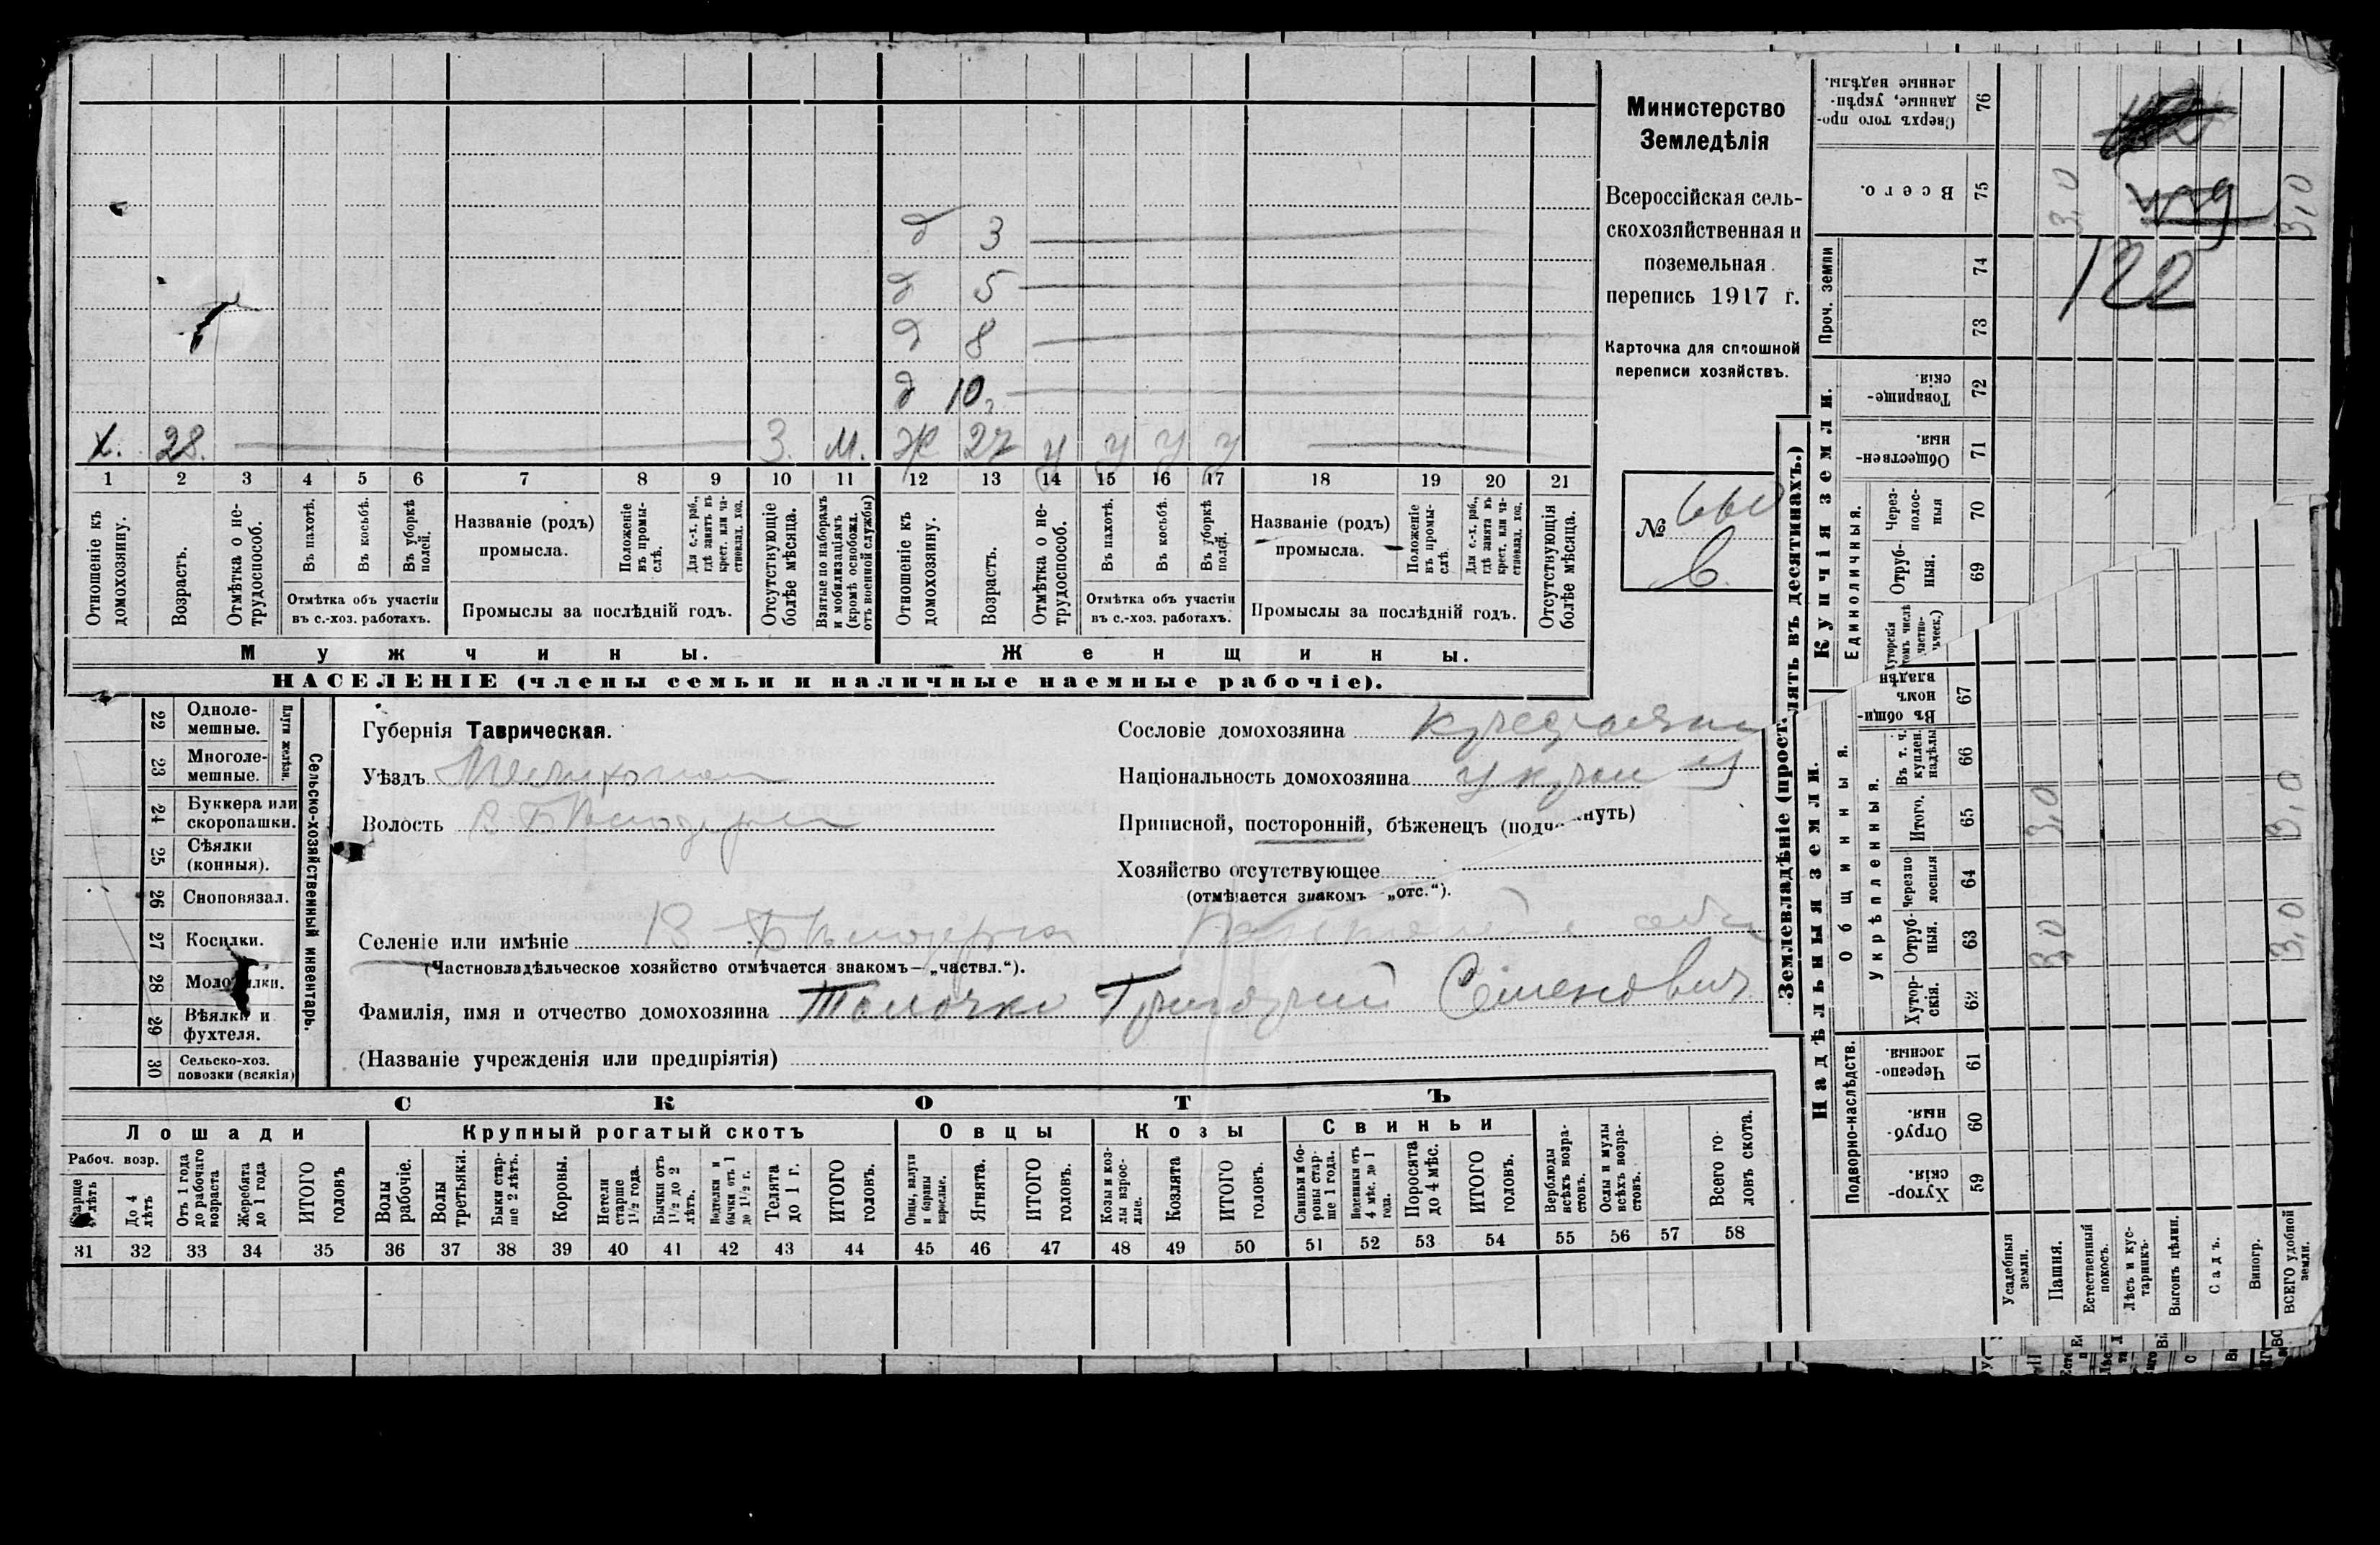 д 3
д 5
д 8
д 10
х. 28. 3. м. ж 27 у у у у
1 2 3 4 5 6 7 8 9 10 11 12 13 14 15 16 17 18 19 20 21
Отношеніе къ домохозяину.
Возрастъ.
Отмѣтка о не-трудоспособ.
Въ пахотѣ.
Въ косьбѣ.
Въ уборкѣ полей.
Отмѣтка объ участіи
въ с.-хоз. работахъ.
Названіе (родъ)
промысла.
Положеніе въ промы-слѣ.
Для с.-х. раб., гдѣ занятъ въ крест. или ча-стновлад. хоз.
Промыслы за послѣдній годъ.
Отсутствующіе болѣе мѣсяца.
Взятые по наборамъ и мобилизаціямъ (кромѣ освобожд. отъ военной службы)
Отношеніе къ домохозяину.
Возрастъ.
Отмѣтка о не-трудоспособ.
Въ пахотѣ.
Въ косьбѣ.
Въ уборкѣ полей.
Отмѣтка объ участіи
въ с.-хоз. работахъ.
Названіе (родъ)
промысла.
Положеніе въ промы-слѣ.
Для с.-х. раб., гдѣ занята въ крест. или ча-стновлад. хоз.
Промыслы за послѣдній годъ.
Отсутствующія болѣе мѣсяца.
Мужчины.
Женщины.
НАСЕЛЕНІЕ (члены семьи и наличные наемные рабочіе).
Министерство
Земледѣлія
Всероссійская сель-
скохозяйственная и
поземельная
перепись 1917 г.
Карточка для сплошной
переписи хозяйствъ.
№
22 Одноле-мешные.
23 Многоле-мешные.
Плуги желѣзн.
24 Буккера или скоропашки.
25 Сѣялки (конныя).
26 Сноповязал.
27 Косилки.
28 Молотилки.
29 Вѣялки и фухтеля.
30 Сельско-хоз. повозки (всякія)
Сельско-хозяйственный инвентарь.
Губернія Таврическая.
Уѣздъ Мелитопол
Волость В Бѣлозерка
Сословіе домохозяина крестьянин
Національность домохозяина украи
Приписной, посторонній, бѣженецъ (подчеркнуть)
Хозяйство отсутствующее
(отмѣчается знакомъ „отс.“).
Селеніе или имѣніе В Бѣлозерка
(Частновладѣльческое хозяйство отмѣчается знакомъ — „частвл.“).
Фамилія, имя и отчество домохозяина Толочко Григорий Семенович
(Названіе учрежденія или предпріятія)
СКОТЪ
Лошади
Рабоч. возр.
Старше 4 лѣтъ
До 4 лѣтъ
Отъ 1 года до рабочаго возраста
Жеребята до 1 года
ИТОГО головъ
Крупный рогатый скотъ
Волы рабочіе.
Волы третьяки.
Быки стар-ше 2 лѣтъ.
Коровы.
Нетели старше 1½ года.
Бычки отъ 1½ до 2 лѣтъ.
Подтелки и бычки отъ 1 до 1½ г.
Телята до 1 г.
ИТОГО головъ.
Овцы
Овцы, валухи и бараны взрослые.
Ягнята.
ИТОГО головъ.
Козы
Козы и коз-лы взрос-лые.
Козлята
ИТОГО головъ.
Свиньи
Свиньи и бо-ровы стар-ше 1 года.
Подсвинки отъ 4 мѣс. до 1 года.
Поросята до 4 мѣс.
ИТОГО головъ.
Верблюды всѣхъ возра-стовъ.
Ослы и мулы всѣхъ возра-стовъ.
Всего го-ловъ скота.
31 32 33 34 35 36 37 38 39 40 41 42 43 44 45 46 47 48 49 50 51 52 53 54 55 56 57 58
Землевладѣніе (прост.
лять въ десятинахъ.)
Купчія земли.
Надѣльныя земли.
Сверхъ того про-данные, укрѣп-ленные надѣлы. 76
Всего. 75 3,0 3,0
122
Проч. земли 74 73
Товарище-скія. 72
Обществен-ныя. 71
Единоличныя.
Через-полос-ныя 70
Отруб-ныя. 69
Въ общи-номъ владѣн 67
Общинныя.
Укрѣпленныя.
Въ т. ч. куплен. надѣлы 66
Итого. 65 3,0 3,0
Черезпо-лосныя 64
Отруб-ныя. 63 3,0 3,0
Хутор-скія. 62
Подворно-наслѣдств.
Черезпо-лосныя. 61
Отруб-ныя. 60
Хутор-скія. 59
Усадебныя земли.
Пашня.
Естественный покосъ.
Лѣсъ и кус-тарникъ.
Выгонъ цѣлин.
Садъ.
Виногр.
ВСЕГО удобной земли.